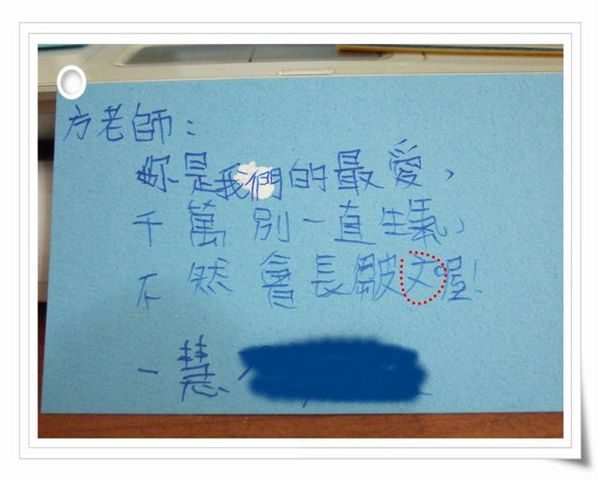 方老師：
妳是我們的最愛，
千萬別一直生氣，
不然會長皺文喔！
一慧